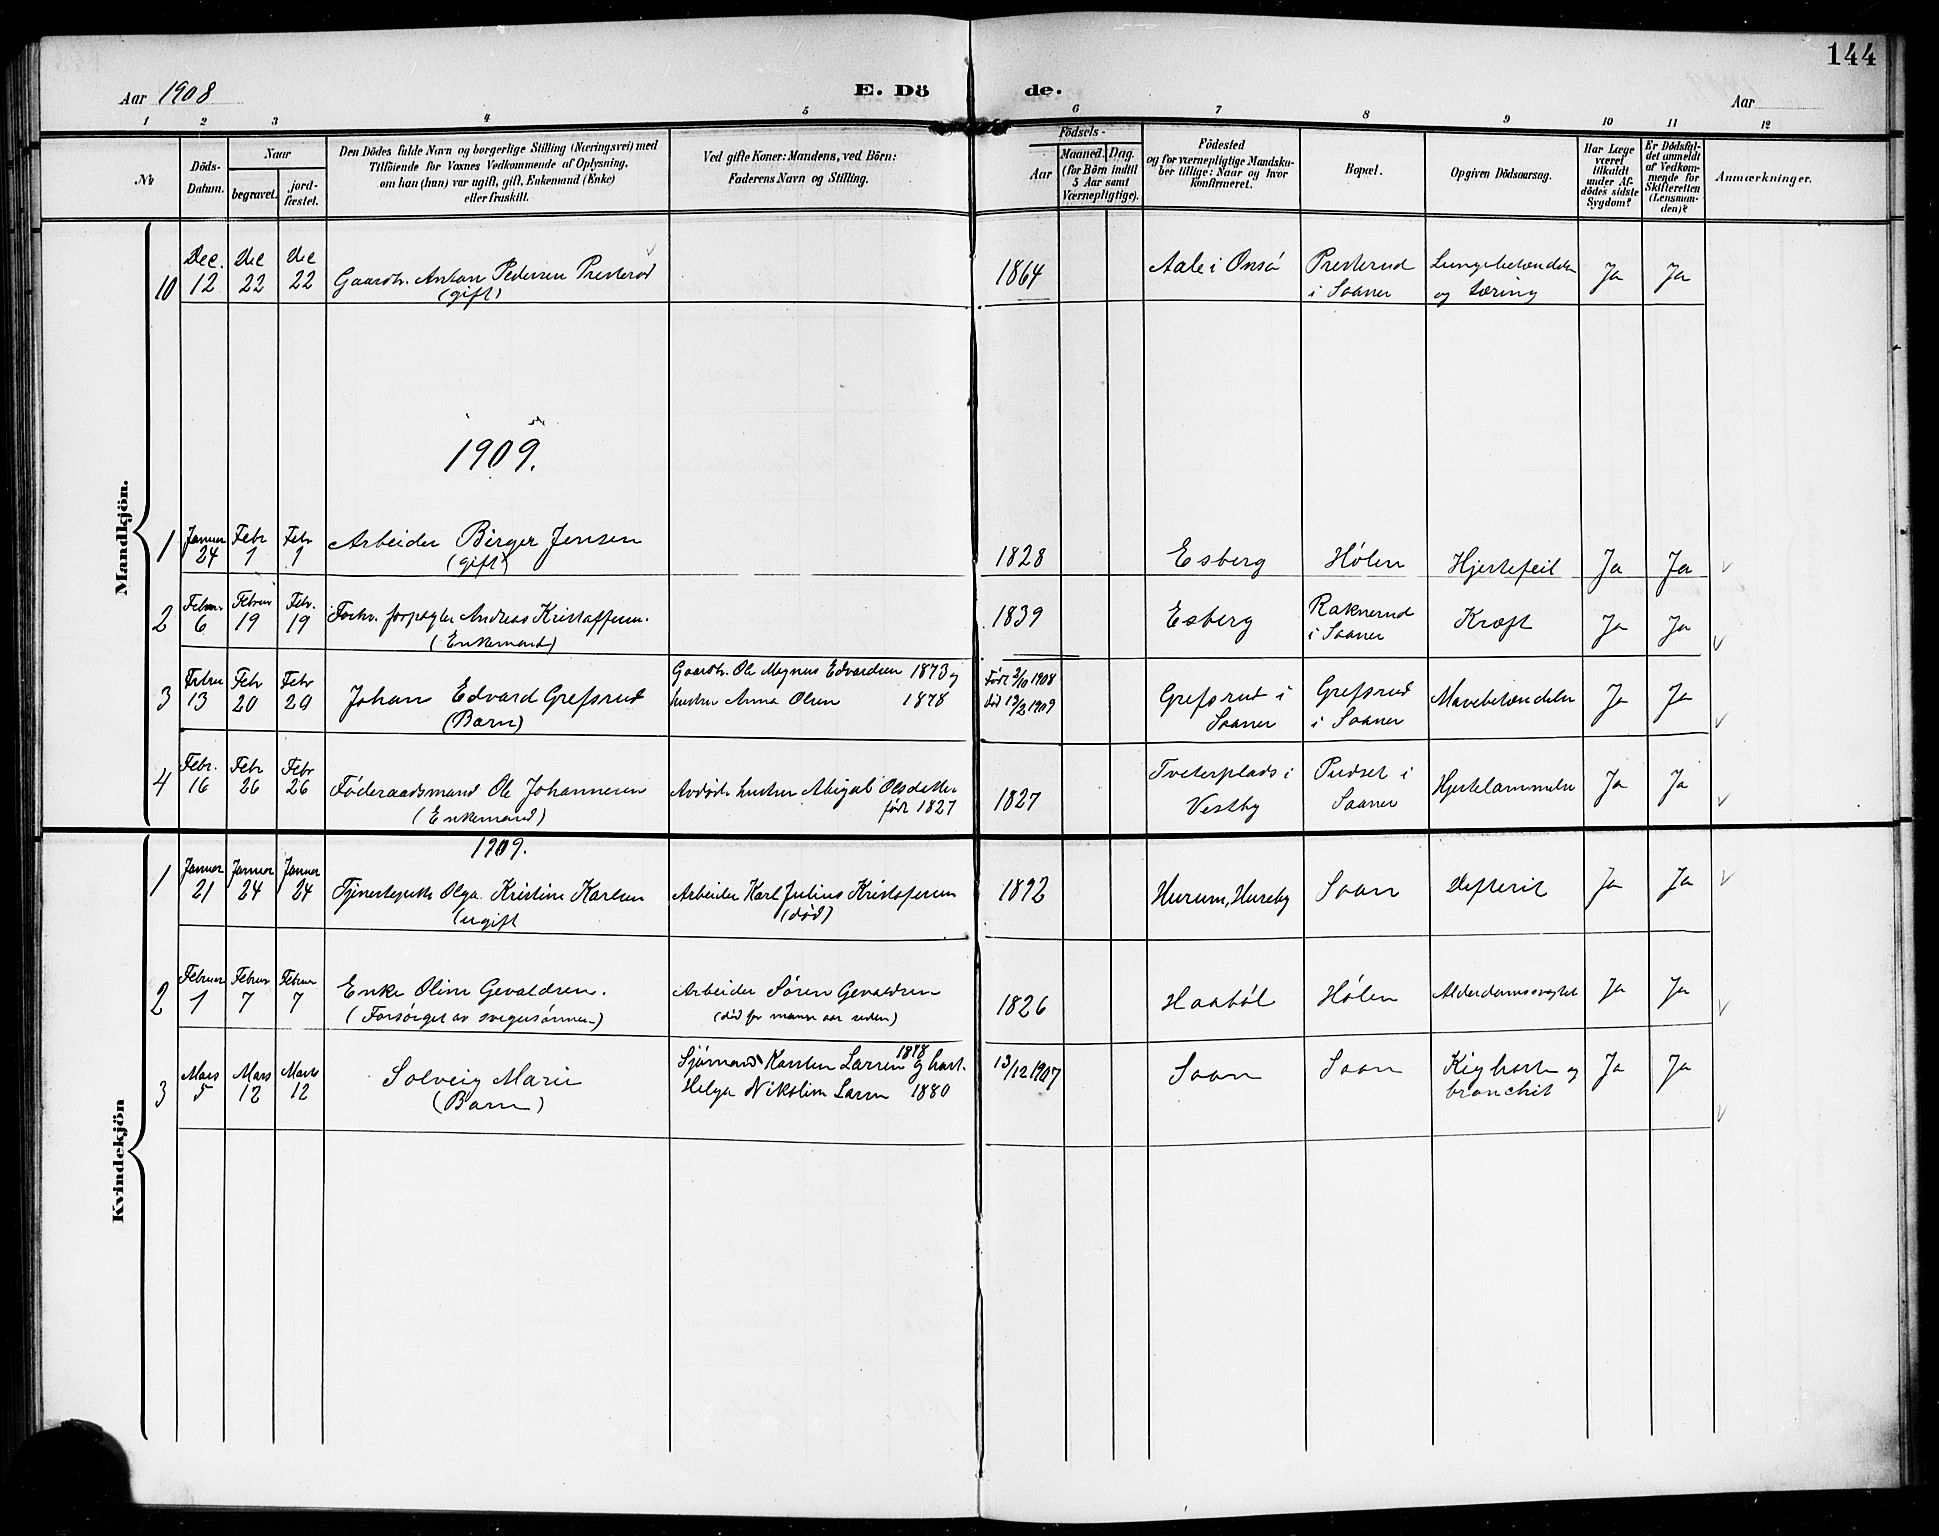 144
Aar 1908
E. Dö
de.
Aar
1 2 3 4 5 6 7 8 9 10 11 12
№
Döds-
Datum.
Naar
begravet.
jord-
fæstet.
Den Dödes fulde Navn og borgerlige Stilling (Næringsvei) med
Tilföiende for Voxnes Vedkommende af Oplysning,
om han (hun) var ugift, gift, Enkemand (Enke)
eller fraskilt.
Ved gifte Koner: Mandens, ved Börn:
Faderens Navn og Stilling.
Födsels-
Aar
Maaned. Dag.
(for Börn indtil
5 Aar samt
Værnepligtige).
Födested
og for værnepligtige Mandsku-
ber tillige: Naar og hvor
konfirmeret.
Bopæl.
Opgiven Dödsaarsag.
Har Læge
været
tilkaldt
under Af-
dödes sidste
Sygdom?
Er Dödsfal-
det anmeldt
af Vedkom-
mende for
Skifteretten
(Lensman-
den)?
Anmærkninger.
Mandkjön.
10
Dec.
12
Dec
22
Dec
22
Gaardbr. Anton Pedersen Presterød
(gift)
1864
Aale i Onsø
Presterud
i Saaner
Lungebetændelse
og tæring
Ja
Ja
1909.
1
Januar
24
Febr
1
Febr
1
Arbeider Birger Jensen
(gift)
1828
Esberg
Hølen
Hjertefeil
Ja
Ja
2
Februar
6
Februar
19
Febr.
19
Forhv. forpagter Andreas Kristoffersen.
(Enkemand)
1839
Esberg
Raknerud
i Saaner
Kræft
Ja
Ja
3
Februar
13
Febr
20
Febr
20
Johan Edvard Grefsrud
(Barn)
Gaardbr. Ole Magnus Edvardsen 1873 og
hustru Anna Olsen 1878
Født 2/10 1908
død 13/2 1909
Grefsrud i
Saaner
Grefsrud
i Saaner
Mavebetændelse
Ja
Ja
4
Febr.
16
Febr
26
Febr
26
Føderaadsmand Ole Johannesen
(Enkemand)
Avdøde hustru Abigael Olsdatter
født 1827
1827
Tveterplads i
Vestby
Pudset i
Saaner
Hjertelammelse
Ja
Ja
Kvindekjön
1909.
1
Januar
21
Januar
24
Januar
24
Tjenestepike Olga Kristine Karlsen
(ugift
Arbeider Karl Julius Kristofersen
(død)
1892
Hurum, Hureby
Saan
Difterit
Ja
Ja
2
Februar
1
Februar
7
Februar
7
Enke Oline Gevaldsen.
(Forsørget av svigersønnen)
Arbeider Søren Gevaldsen
(død for mange aar siden)
1826
Haabøl
Hølen
Alderdomssvaghet
Ja
Ja
3
Mars
5
Mars
12
Mars
12
Solveig Marie
(Barn)
Sjømand Karsten Larsen 1878 og hust.
Helga Nikoline Larsen 1880
13/12 1907
Saan
Saan
Kighoste og
bronchit
Ja
Ja